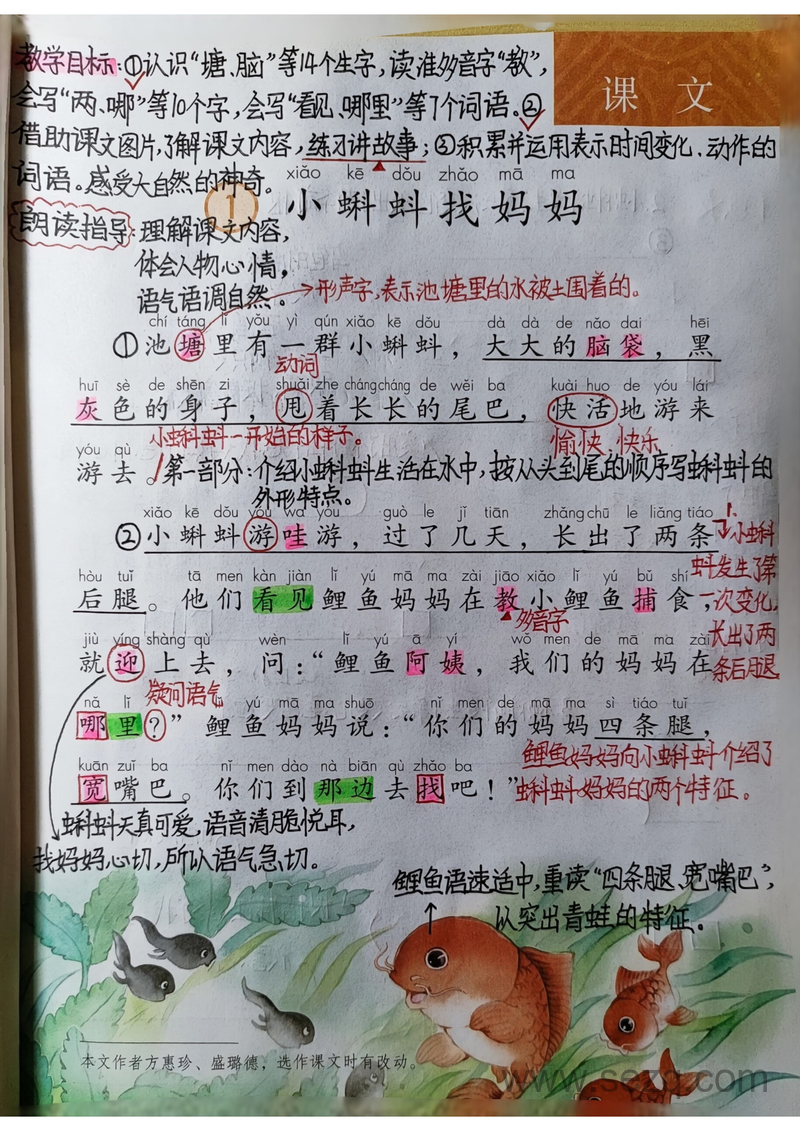 教学目标:①认识“塘、脑”等14个生字,读准多音字“教”,
会写“两、哪”等10个字,会写“看见、哪里”等7个词语。②
借助课文图片,了解课文内容,练习讲故事;③积累并运用表示时间变化、动作的
词语。感受大自然的神奇。
课 文
xiǎo kē dǒu zhǎo mā ma
1 小蝌蚪找妈妈
朗读指导:理解课文内容,
体会人物心情,
语气语调自然。
形声字,表示池塘里的水被土围着的。
chí táng lǐ yǒu yì qún xiǎo kē dǒu dà dà de nǎo dai hēi
①池塘里有一群小蝌蚪,大大的脑袋,黑
动词
huī sè de shēn zi shuǎi zhe cháng cháng de wěi ba kuài huo de yóu lái
灰色的身子,甩着长长的尾巴,快活地游来
小蝌蚪一开始的样子。
愉快、快乐
yóu qù
游去。
第一部分:介绍小蝌蚪生活在水中,按从头到尾的顺序写蝌蚪的
外形特点。
xiǎo kē dǒu yóu wa yóu guò le jǐ tiān zhǎng chū le liǎng tiáo
②小蝌蚪游哇游,过了几天,长出了两条
hòu tuǐ tā men kàn jiàn lǐ yú mā ma zài jiāo xiǎo lǐ yú bǔ shí
后腿。他们看见鲤鱼妈妈在教小鲤鱼捕食,
1.小蝌
蚪发生了第
一次变化,
长出了两
条后腿
多音字
jiù yíng shàng qù wèn lǐ yú ā yí wǒ men de mā ma zài
就迎上去,问:“鲤鱼阿姨,我们的妈妈在
疑问语气
nǎ lǐ lǐ yú mā ma shuō nǐ men de mā ma sì tiáo tuǐ
哪里?”鲤鱼妈妈说:“你们的妈妈四条腿,
kuān zuǐ ba nǐ men dào nà biān qù zhǎo ba
宽嘴巴。你们到那边去找吧!”
鲤鱼妈妈向小蝌蚪介绍了
蝌蚪妈妈的两个特征。
蝌蚪天真可爱,语音清脆悦耳,
找妈妈心切,所以语气急切。
鲤鱼语速适中,重读“四条腿、宽嘴巴”,
以突出青蛙的特征。
本文作者方惠珍、盛璐德,选作课文时有改动。